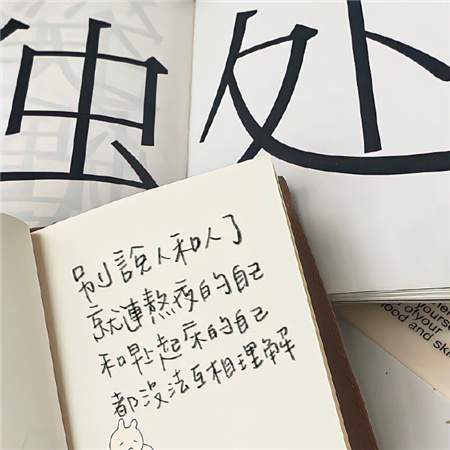 独处
别說人和人了
就連熬夜的自己
和早上起床的自己
都沒法互相理解
of your
and